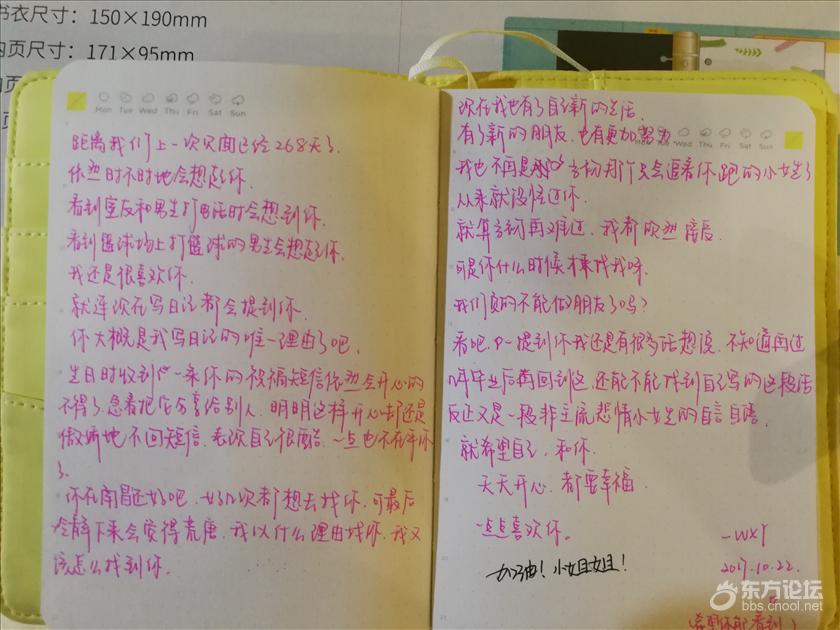 书衣尺寸：150×190mm
内页尺寸：171×95mm
内页
Mon Tue Wed Thu Fri Sat Sun
距离我们上一次见面已经268天了
依然时不时地会想起你.
看到室友和男生打电话时会想到你.
看到篮球场上打篮球的男生会想起你.
我还是很喜欢你.
就连次在写日记都会提到你.
你大概是我写日记的唯一理由了吧.
生日时收到一条你的祝福短信依然会开心的
不得了.急着把它分享给别人.明明这样开心却还是
傲娇地不回短信.装次自己很酷.一点也不在乎你
了.
你在南昌还好吧.好几次都想去找你.可最后
冷静下来会觉得荒唐.我以什么理由找你.我又
该怎么找到你.
现在我也有了自己新的生活.
有了新的朋友.也有更加努力
Wed Thu Fri Sat Sun
我也不再是当初那个只会追着你跑的小女生了
从来就没怪过你.
就算当初再难过.我都欣然接受.
可是你什么时候来找我呀.
我们真的不能做朋友了吗?
看吧.一提到你我还是有很多话想说.不知道再过
几年毕业后再回到这.还能不能找到自己写的这段话
反正又是一段非主流悲情小女生的自言自语.
就希望自己.和你.
天天开心.都要幸福.
一直喜欢你.
—WXY
加油！小姐姐！
2017.10.22.
(希望你能看到)
东方论坛
bbs.cnool.net